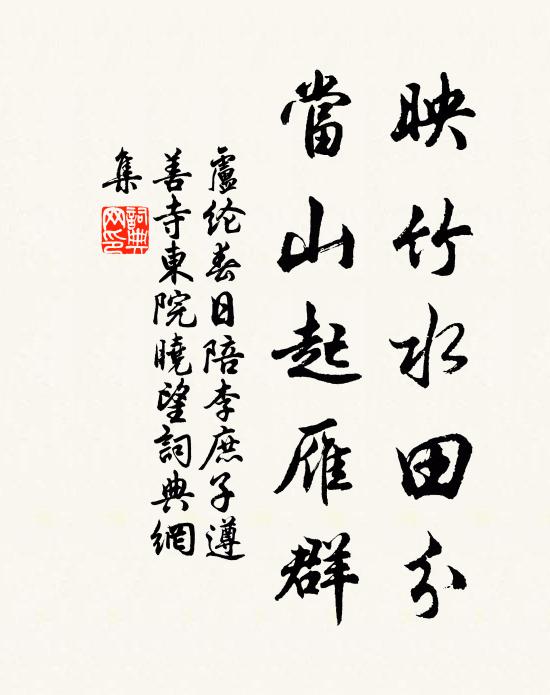 映竹水田分
當山起雁群
盧纶春日陪李庶子遵
善寺東院曉望詞典網
集
詞典
网印